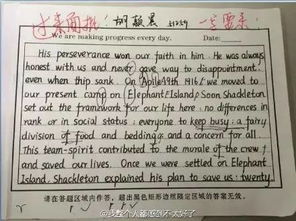 We are making progress every day. Date:
His perseverance won our faith in him. He was always
honest with us and never gave way to disappointment
even when thip sank. On April 9th 1916, we moved to
our present camp on Elephant Island. Soon, Shackleton
set out the framework for our life here: no differences in
rank or in social status; everyone to keep busy; a fairy
division of food and bedding; and a concern for all.
This team-spirit contributed to the morale of the crew
and saved our lives. Once we were settled on Elephant
Island, Shackleton explained his plan to save us: twenty
请在答题区域内作答，超出黑色矩形边框限定区域的答案无效。